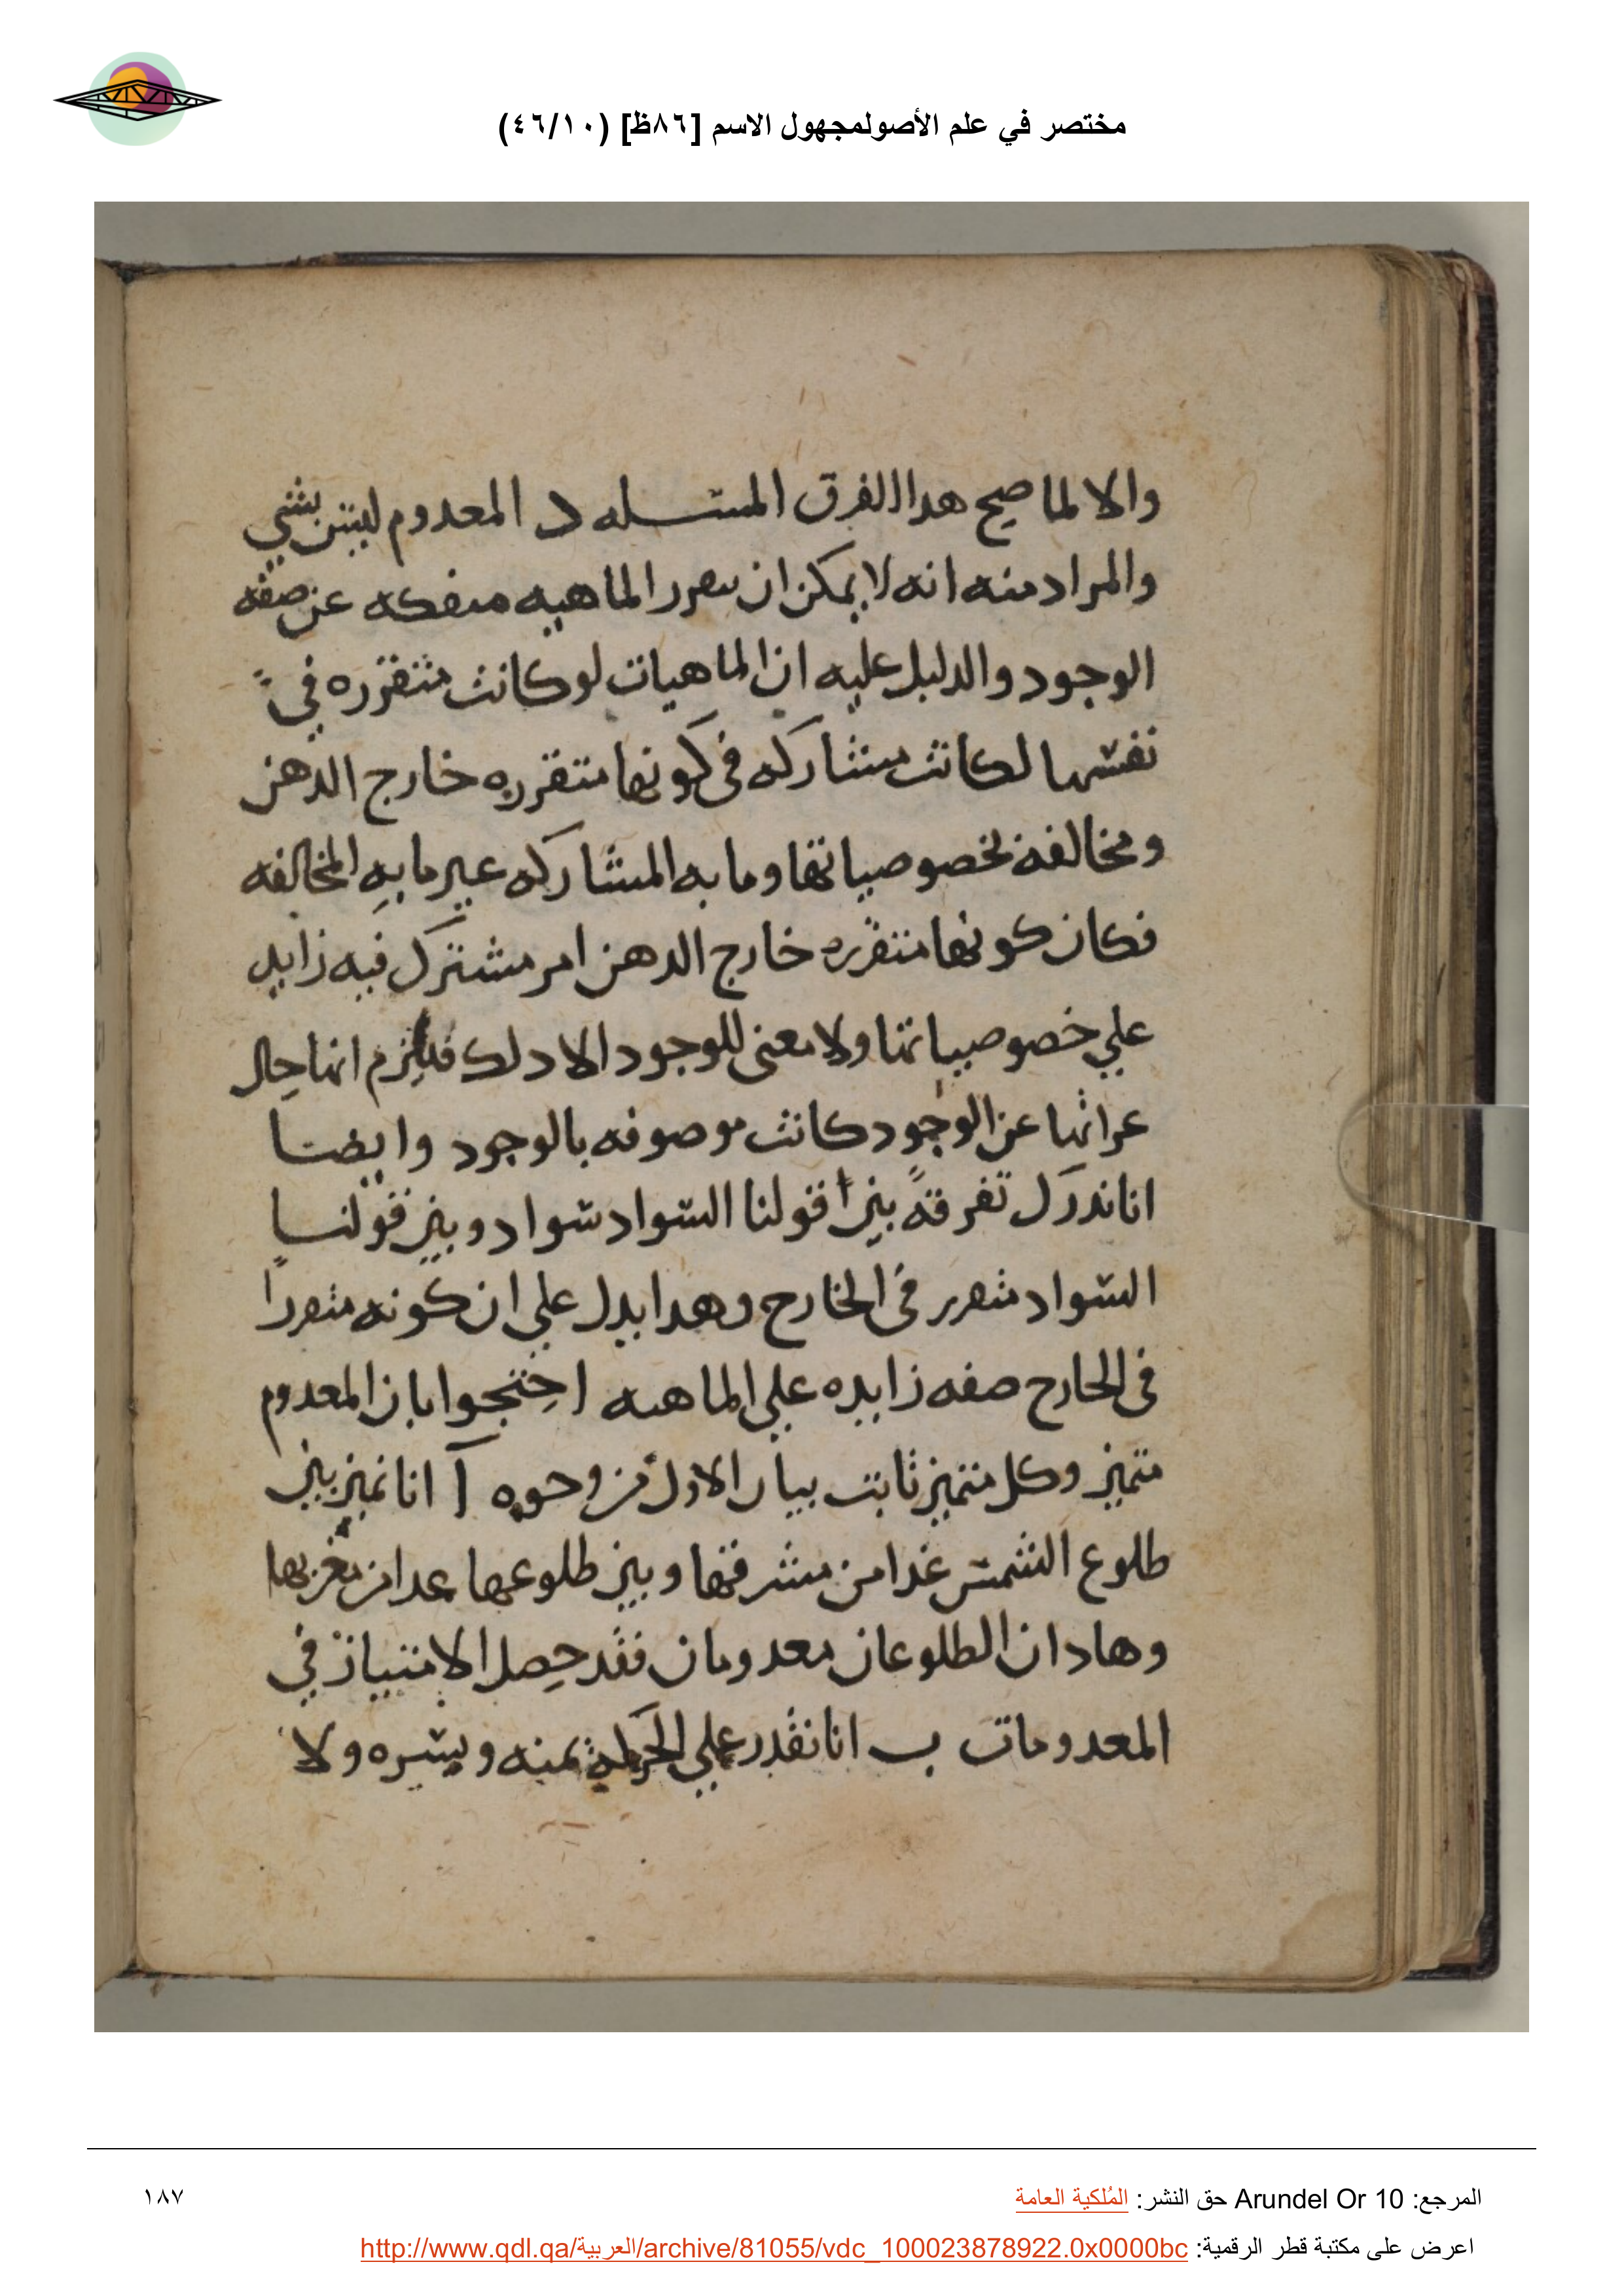 مختصر في علم الأصولمجهول الاسم [٨٦ظ] (٤٦/١٠)
والا لما صح هدا الفرق المسله د المعدوم ليس بشي
والمراد منه انه لا يمكن ان ىىقرر الماهيه منفكه عن صفه
الوجود والدليل عليه ان الماهيات لو كانت متقرره في
نفسها لكانت متشاركه في كونها متقرره خارج الدهن
ومخالفة بخصوصياتها وما به المشاركه غير ما به المخالفه
فكان كونها متقرره خارج الدهن امر مشترك فيه زايد
علي خصوصياتها ولا معنى للوجود الا دلك فيلزم انها حال
عرائها عن الوجود كانت موصوفه بالوجود وايضا
انا ندرك تفرقةً بين قولنا السواد سواد وبين قولنا
السواد متقرر في الخارج وهدا يدل علي ان كونه متقررا
في الخارج صفه زايده علي الماهيه احتجوا بان المعدوم
متميز وكل متميز ثابت بيان الاول من وجوه آ انا نميز بين
طلوع الشمس غدا من مشرقها وبين طلوعها غدا من مغربها
وهادان الطلوعان معدومان فقد حصل الامتياز في
المعدومات ب انا نقدر علي الحركه يمنه ويسره ولا
المرجع: Arundel Or 10 حق النشر: المُلكية العامة
١٨٧
اعرض على مكتبة قطر الرقمية: http://www.qdl.qa/العربية/archive/81055/vdc_100023878922.0x0000bc